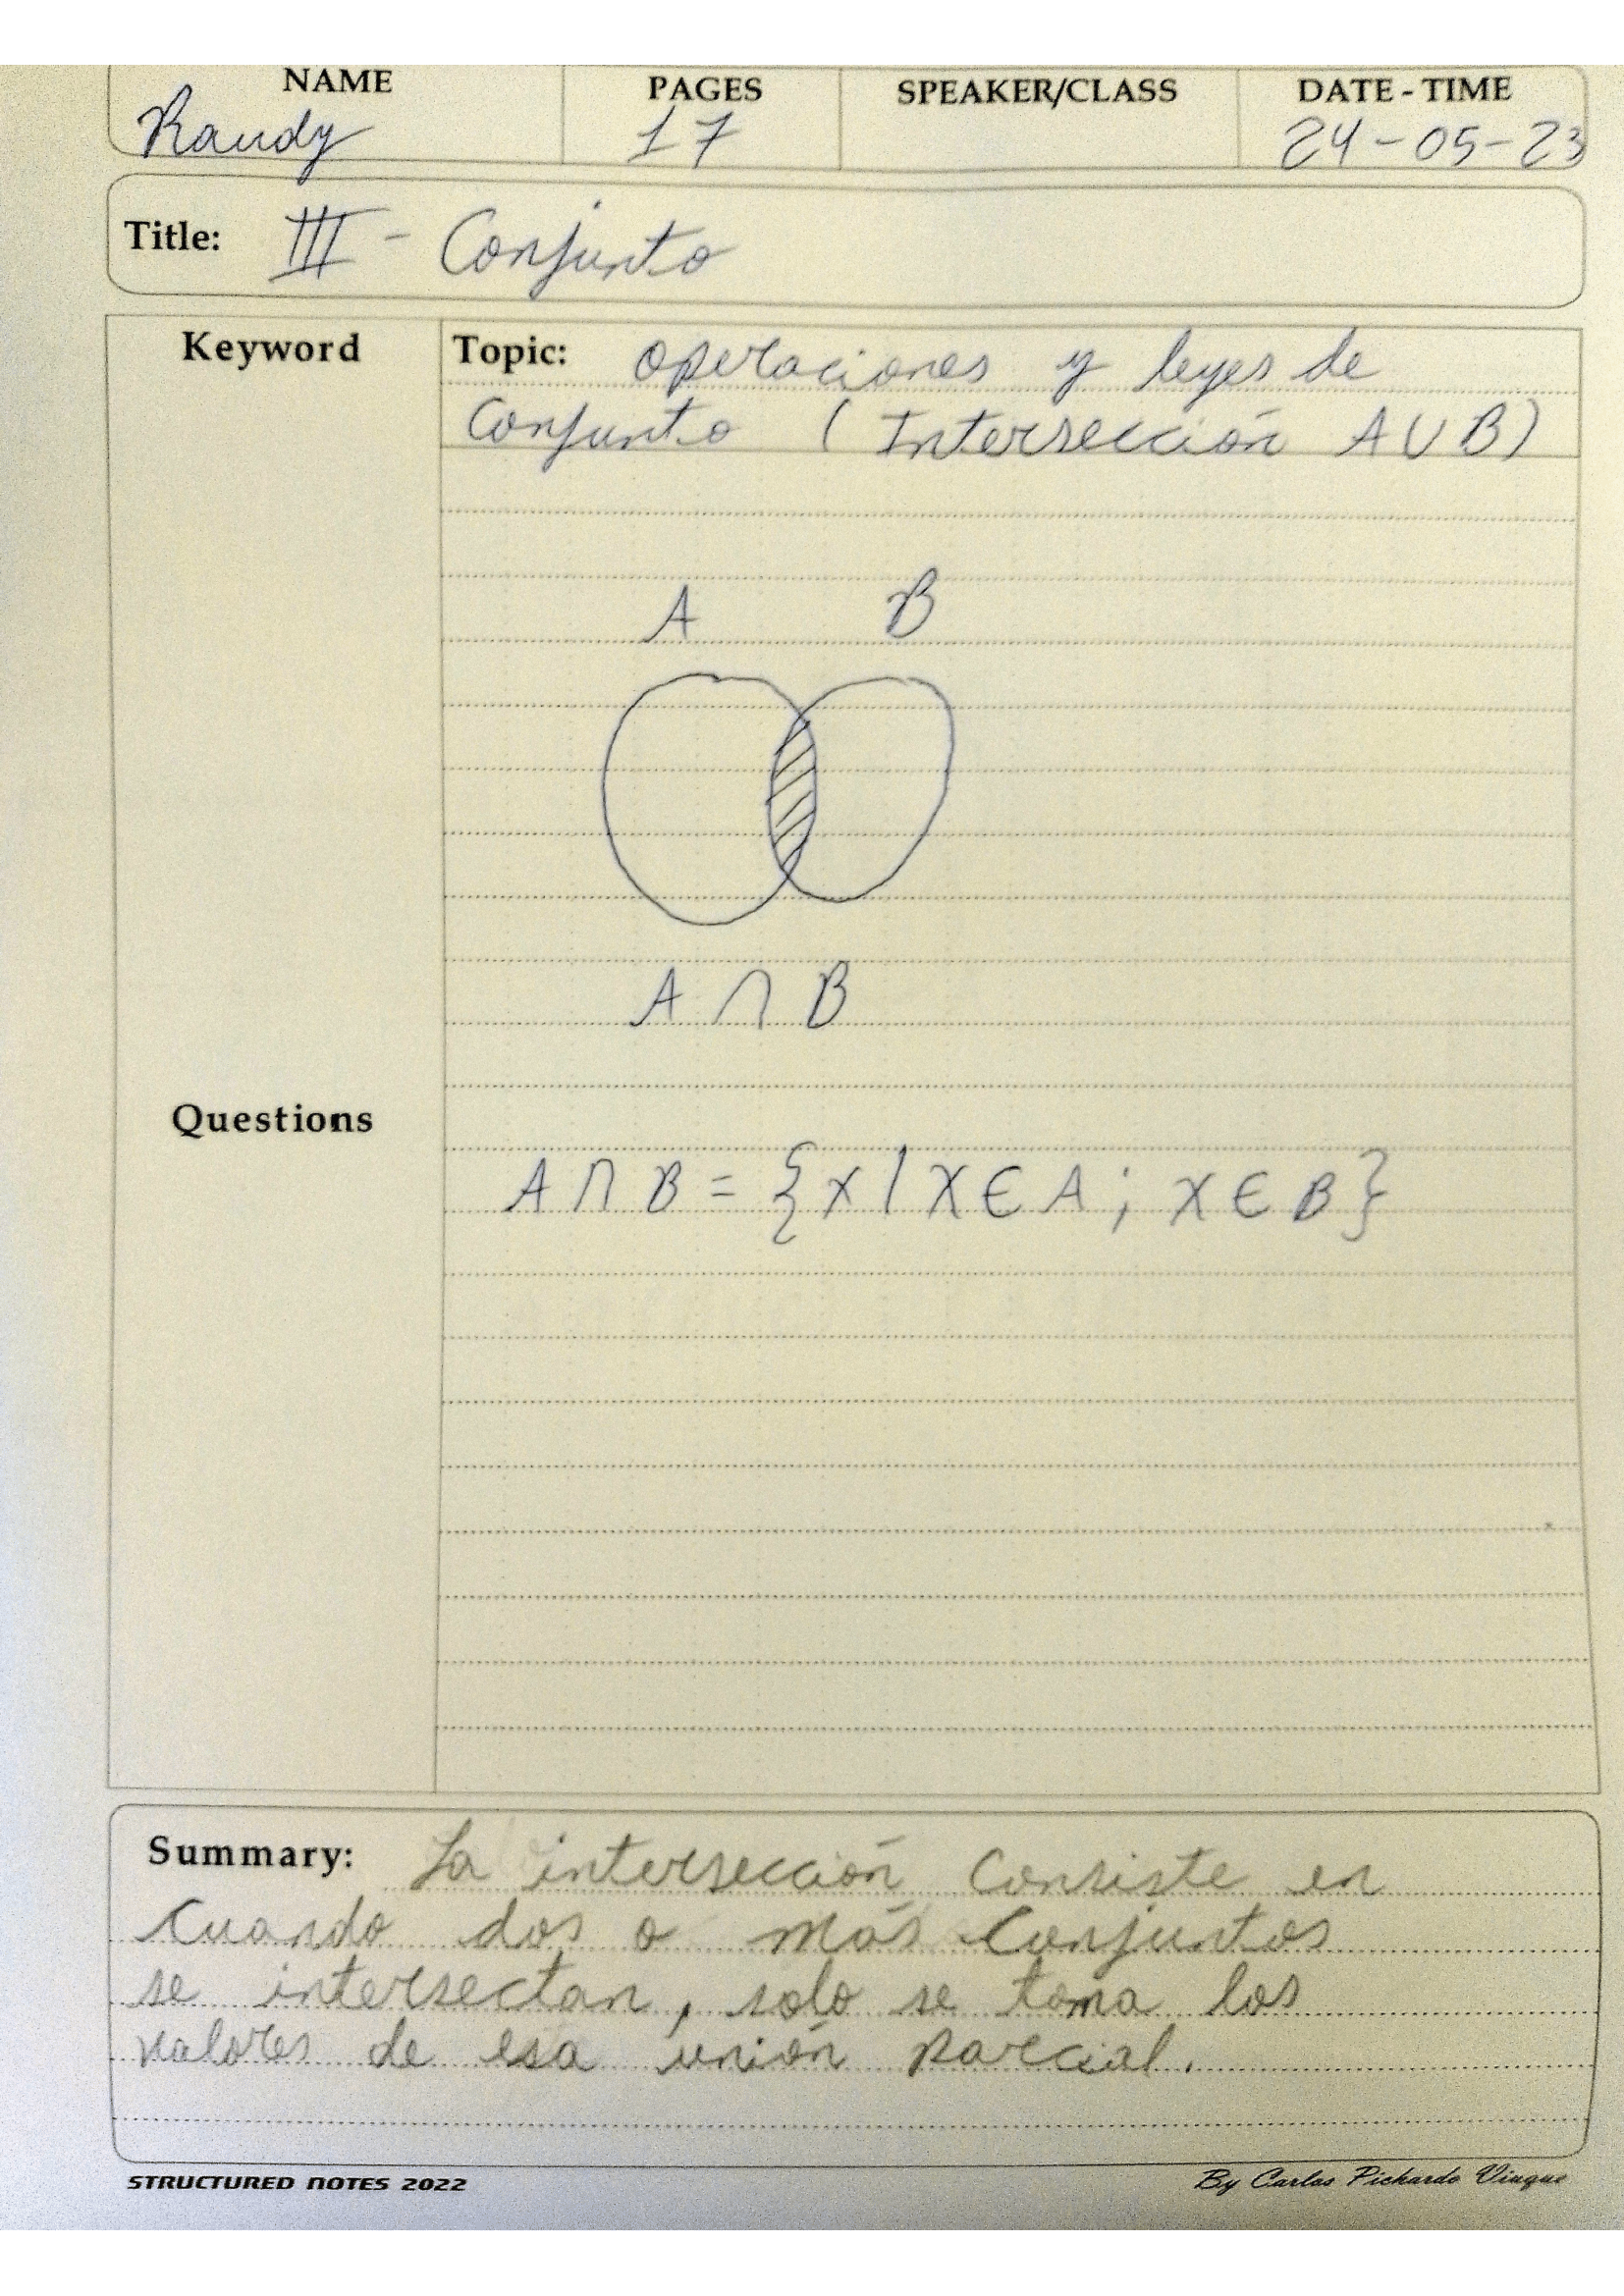 NAME PAGES SPEAKER/CLASS DATE-TIME
Randy 17 24-05-23
Title: III - Conjunto
Keyword Topic: Operaciones y leyes de
Conjunto (Intersección A∪B)
A B
A ∩ B
Questions
A ∩ B = {x / x ∈ A ; x ∈ B}
Summary: La intersección consiste en
cuando dos o más conjuntos
se intersectan, solo se toma los
valores de esa unión parcial.
STRUCTURED NOTES 2022 By Carlos Pichardo Viuque